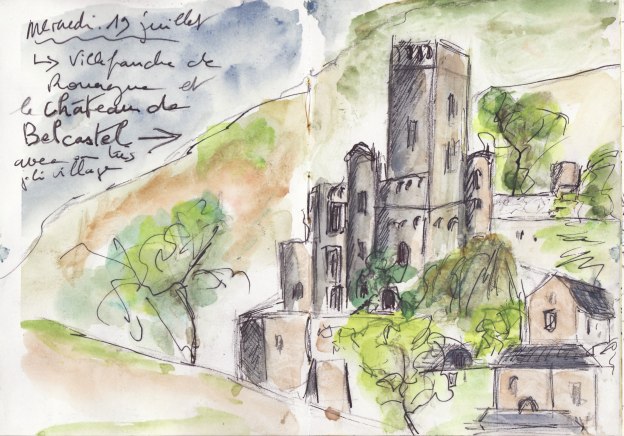 Mercredi 19 juillet
↳ Villefranche de
Rouergue et
le Château de
Belcastel →
avec un très
joli village